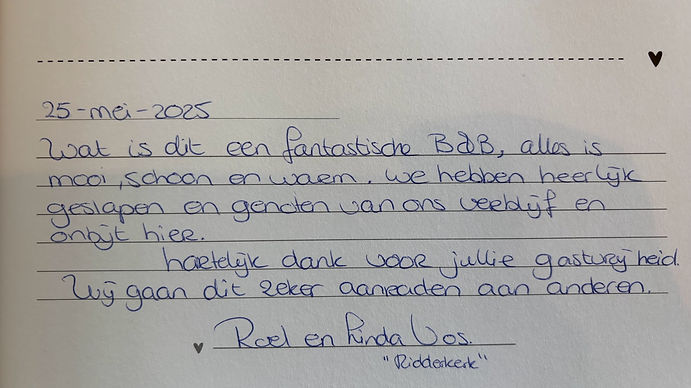 25-mei-2025
Wat is dit een fantastische B&B, alles is
mooi, schoon en warm. We hebben heerlijk
geslapen en genoten van ons verblijf en
ontbijt hier.
hartelijk dank voor jullie gastvrijheid.
Wij gaan dit zeker aanraden aan anderen.
Roel en Linda Vos.
"Ridderkerk"